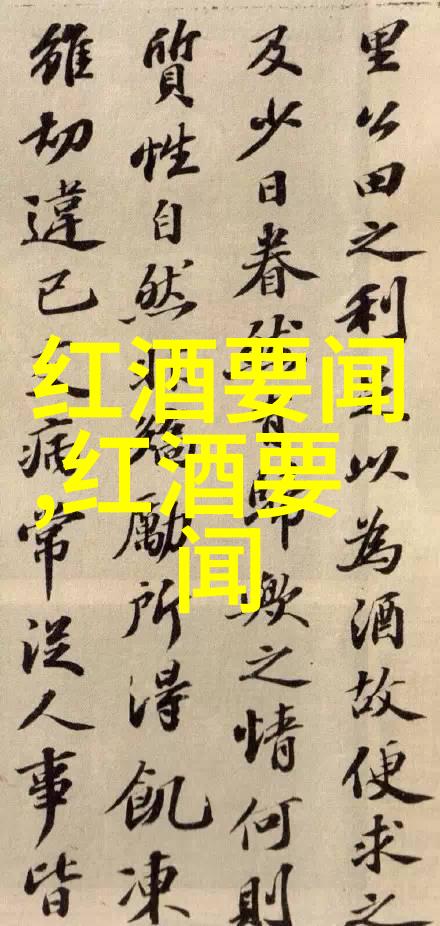 里公田之利足以為酒故便求之
及少日眷然有歸歟之情何則
質性自然非矯勵所得飢凍
雖切違己交病常從人事皆
红酒要闻
,红酒要
闻